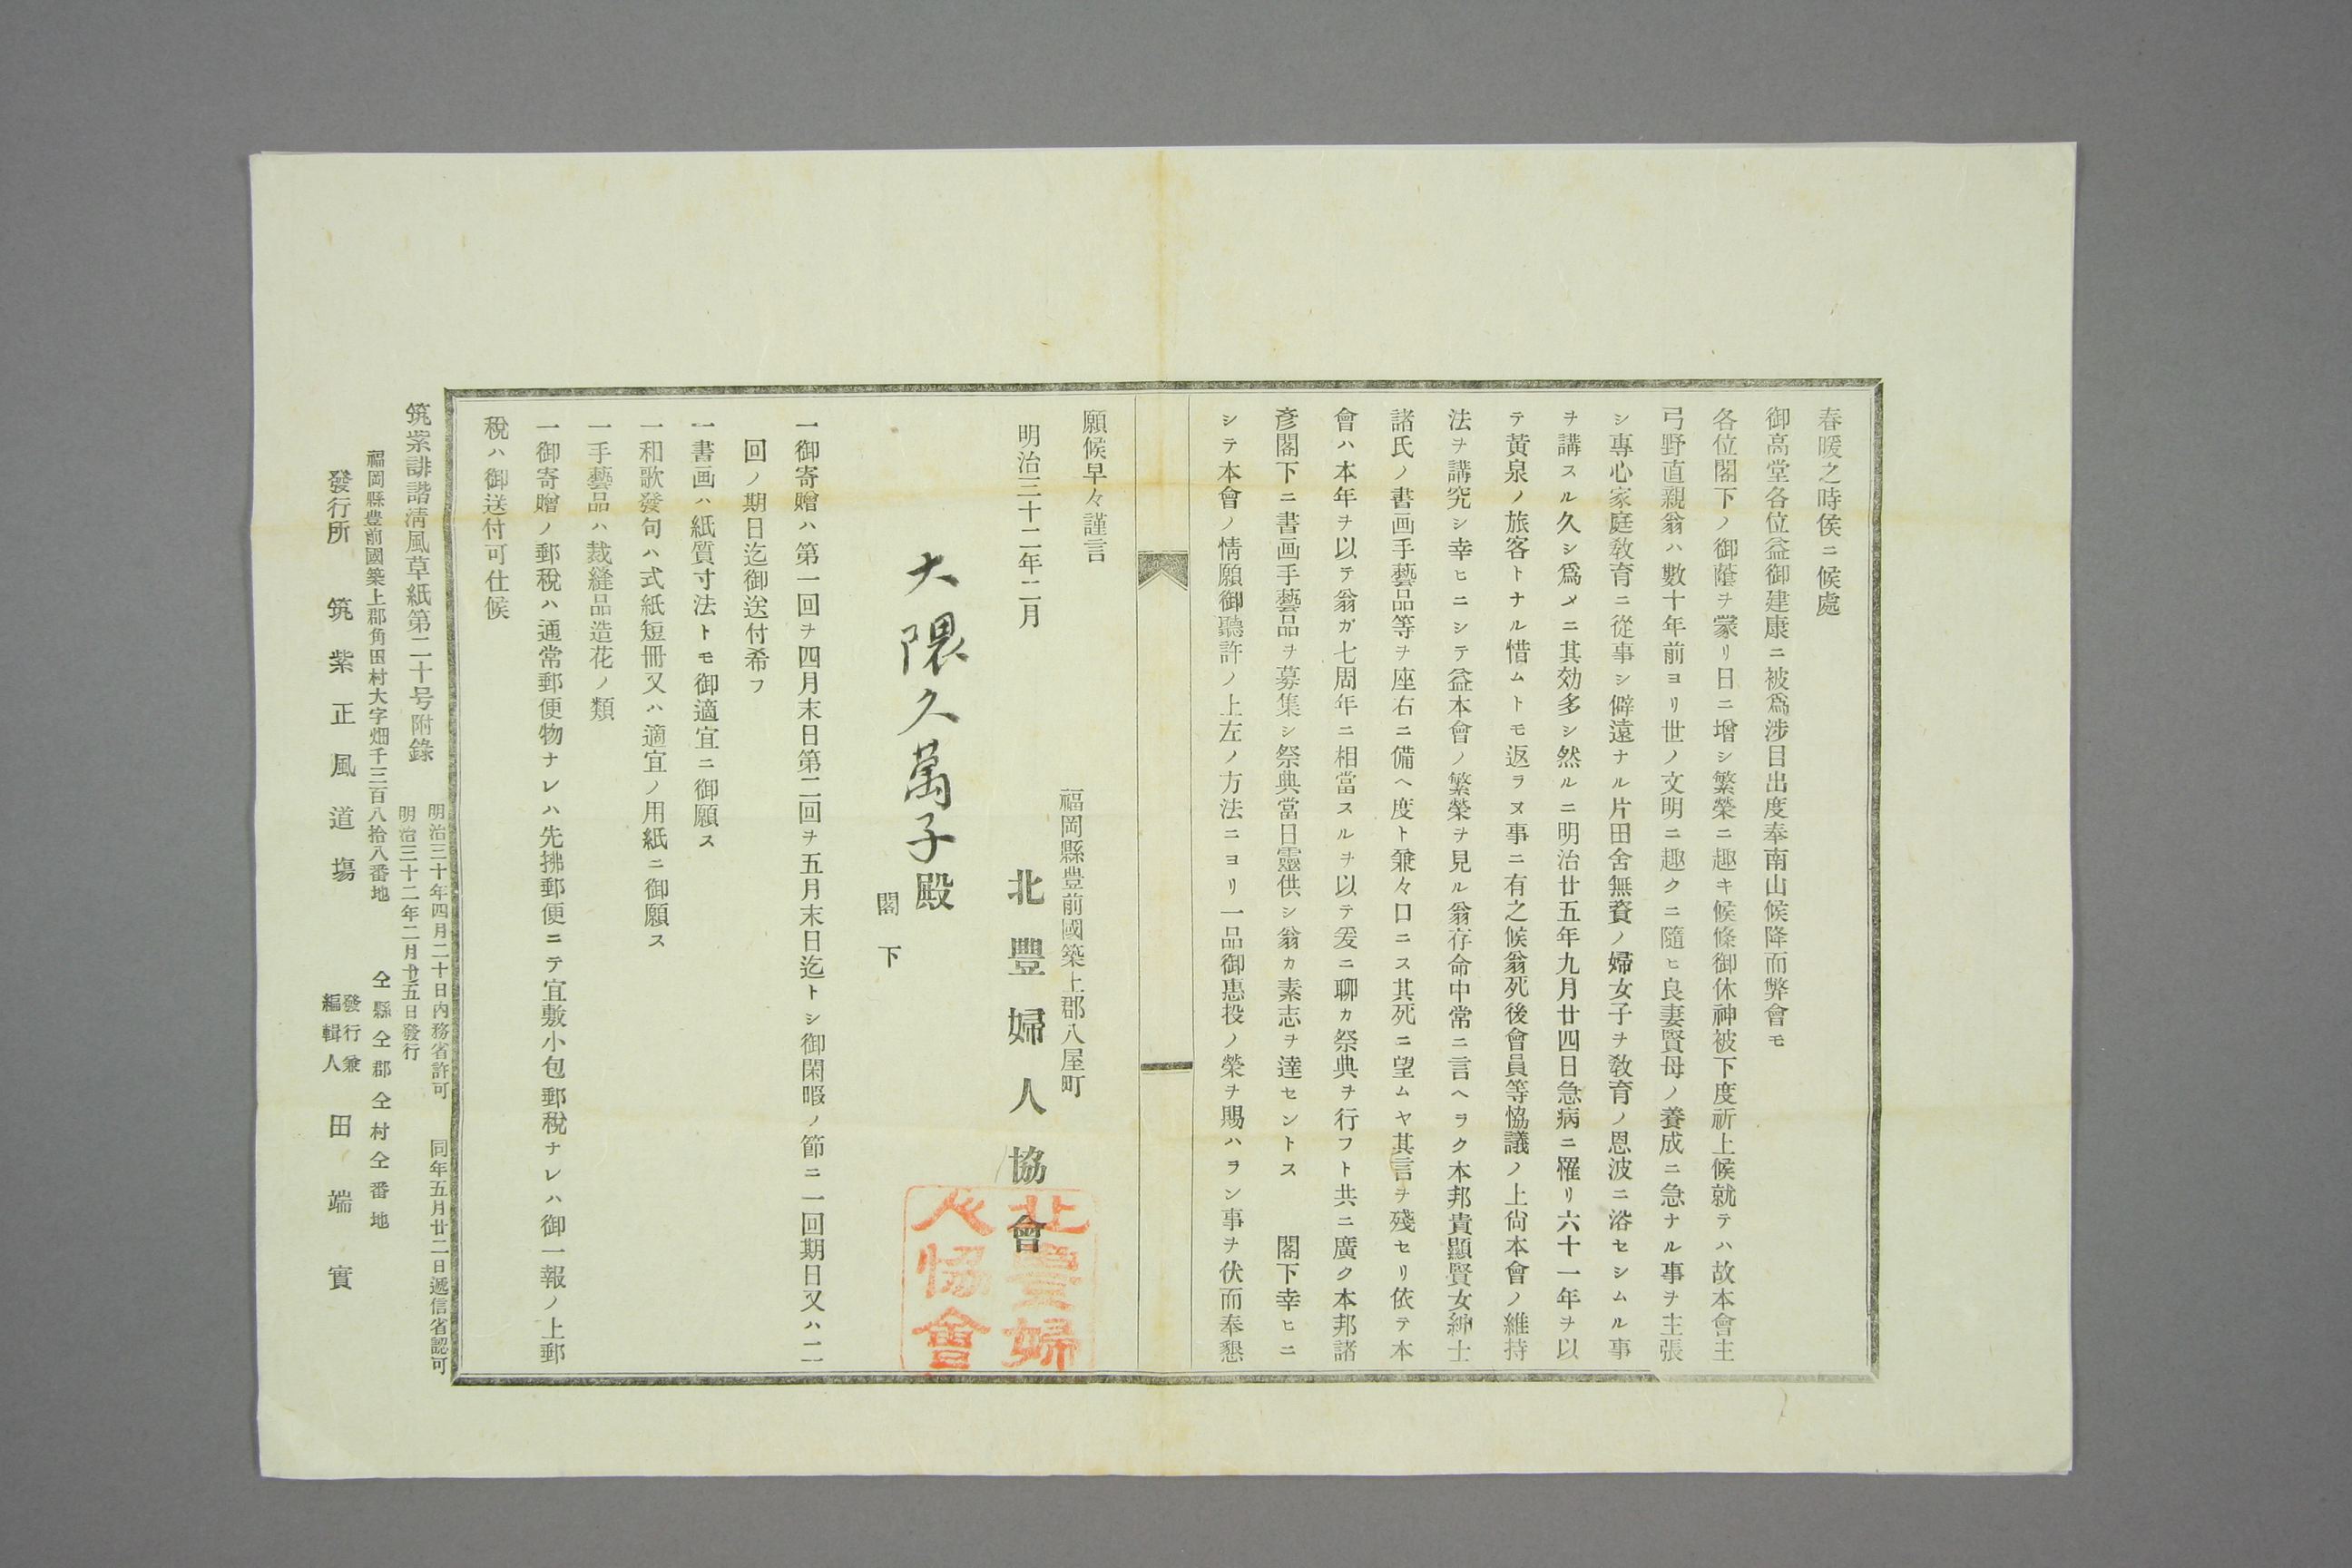 春暖之時侯ニ候處
御高堂各位益御建康ニ被爲涉目出度奉南山候降而弊會モ
各位閣下ノ御蔭ヲ蒙リ日ニ增シ繁榮ニ趣キ候條御休神被下度祈上候就テハ故本會主
弓野直親翁ハ數十年前ヨリ世ノ文明ニ趣クニ隨ヒ良妻賢母ノ養成ニ急ナル事ヲ主張
シ專心家庭敎育ニ從事シ僻遠ナル片田舍無資ノ婦女子ヲ敎育ノ恩波ニ浴セシムル事
ヲ講スル久シ爲メニ其効多シ然ルニ明治廿五年九月廿四日急病ニ罹リ六十一年ヲ以
テ黃泉ノ旅客トナル惜ムトモ返ラヌ事ニ有之候翁死後會員等恊議ノ上尙本會ノ維持
法ヲ講究シ幸ヒニシテ益本會ノ繁榮ヲ見ル翁存命中常ニ言ヘラク本邦貴顯賢女紳士
諸氏ノ書画手藝品等ヲ座右ニ備ヘ度ト兼々口ニス其死ニ望ムヤ其言ヲ殘セリ依テ本
會ハ本年ヲ以テ翁ガ七周年ニ相當スルヲ以テ爰ニ聊カ祭典ヲ行フト共ニ廣ク本邦諸
彥閣下ニ書画手藝品ヲ募集シ祭典當日靈供シ翁カ素志ヲ達セントス 閣下幸ヒニ
シテ本會ノ情願御聽許ノ上左ノ方法ニヨリ一品御惠投ノ榮ヲ賜ハラン事ヲ伏而奉懇
願候早々謹言
福岡縣豊前國築上郡八屋町
明治三十二年二月
北豐婦人協會
北豊婦
人協會
大隈久萬子殿
閣下
一御寄贈ハ第一回ヲ四月末日第二回ヲ五月末日迄トシ御閑暇ノ節ニ一回期日又ハ二
回ノ期日迄御送付希フ
一書画ハ紙質寸法トモ御適宜ニ御願ス
一和歌發句ハ式紙短冊又ハ適宜ノ用紙ニ御願ス
一手藝品ハ裁縫品造花ノ類
一御寄贈ノ郵稅ハ通常郵便物ナレハ先拂郵便ニテ宜敷小包郵稅ナレハ御一報ノ上郵
稅ハ御送付可仕候
明治三十年四月二十日内務省許可 同年五月廿二日遞信省認可
筑紫誹諧淸風草紙第二十号附錄
明治三十二年二月廿五日發行
福岡縣豊前國築上郡角田村大字畑千三百八拾八番地
仝縣仝郡仝村仝番地
發行所 筑紫正風道塲
發行兼
編輯人 田端實